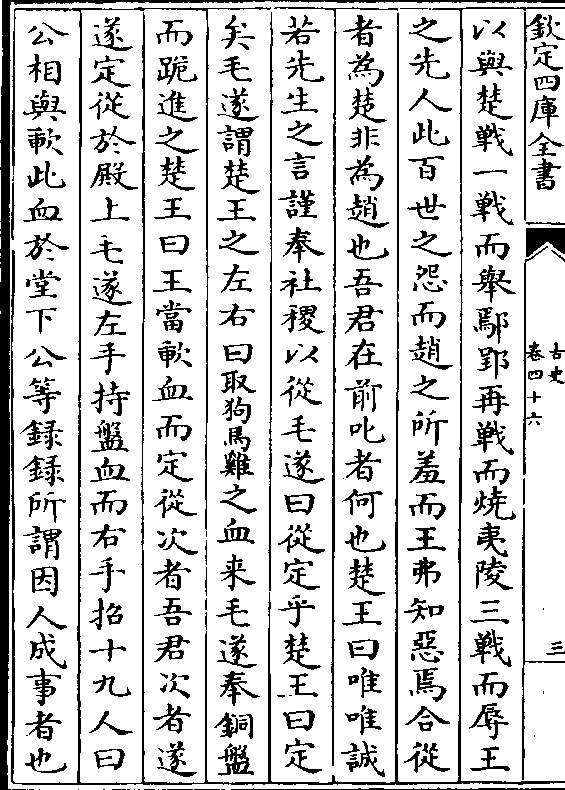 欽定四庫全書
古史
卷四十六
三
以與楚戰一戰而舉鄢郢再戰而燒夷陵三戰而辱王
之先人此百世之怨而趙之所羞而王弗知惡焉合從
者為楚非為趙也吾君在前叱者何也楚王曰唯唯誠
若先生之言謹奉社稷以從毛遂曰從定乎楚王曰定
矣毛遂謂楚王之左右曰取狗馬雞之血来毛遂奉銅盤
而跪進之楚王曰王當歃血而定從次者吾君次者遂
遂定從於殿上毛遂左手持盤血而右手招十九人曰
公相與歃此血於堂下公等録録所謂因人成事者也